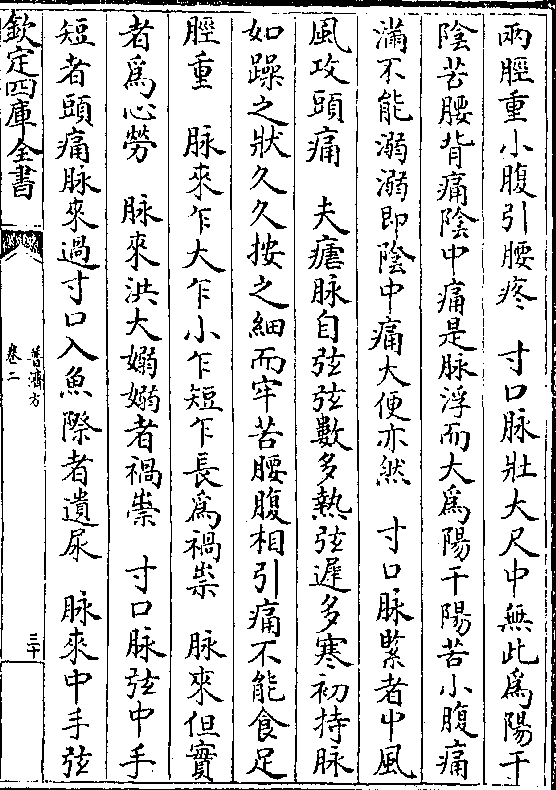 兩脛重小腹引腰疼　寸口脉壯大尺中無此為陽干
陰苦腰背痛陰中痛是脉浮而大為陽干陽苦小腹痛
滿不能溺溺即陰中痛大便亦然　寸口脉緊者中風
風攻頭痛　夫瘧脉自弦弦數多熱弦遲多寒初持脉
如躁之狀久久按之細而牢苦腰腹相引痛不能食足
脛重　脉來乍大乍小乍短乍長為禍祟　脉來但實
者為心勞　脉來洪大嫋嫋者禍祟　寸口脉弦中手
短者頭痛脉來過寸口入魚際者遺尿　脉來中手弦
欽定四庫全書
普濟方
卷二
三十